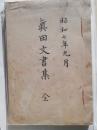 昭和七年九月
真田文書集 全